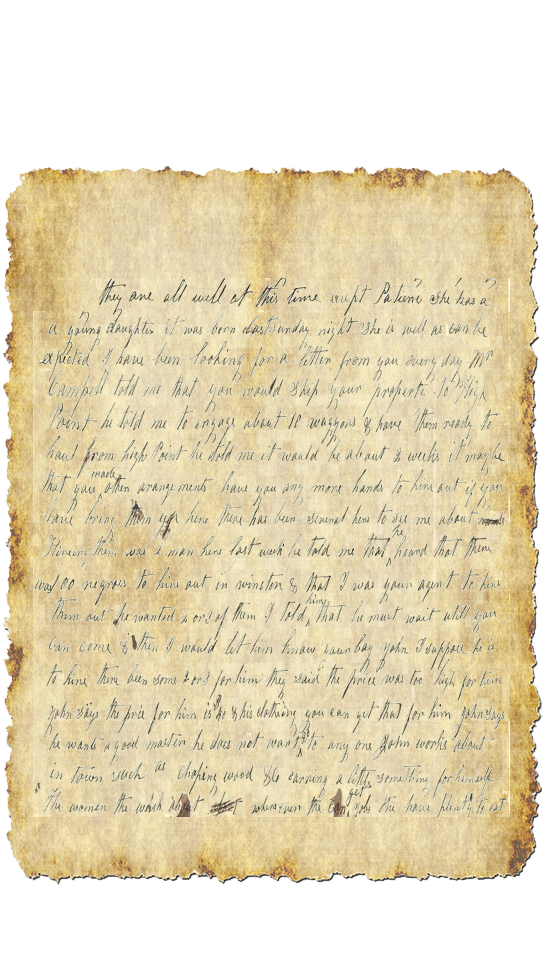 they are all well at this time exept Patient she has a
a young daughter it was born last sunday night she is well as can be
expected I have been looking for a letter from you every day Mr
Campell told me that you would ship your property to High
Point he told me to engage about 10 waggons & have them ready to
haul from high Point he told me it would be about 2 weeks it maybe
that you made other arangements have you any more hands to hire out if you
have bring them up here there has been several here to see me about
Hireing them was a man here last week he told me that he heard that there
was 100 negroes to hire out in winston & that I was your agent to hire
them out he wanted 2 or 3 of them I told him that he must wait till you
can come & then I would let him know john I suppose he is
to hire there been some 2 or 3 for him they said the price was too high for him
john says the price for him is & his clothing you can get that for him john says
he wants a good master he does not want to any one John works about
in town such as choping wood &c earning a little something for himself
The women the wash about where ever the can get jobs the have plenty to eat